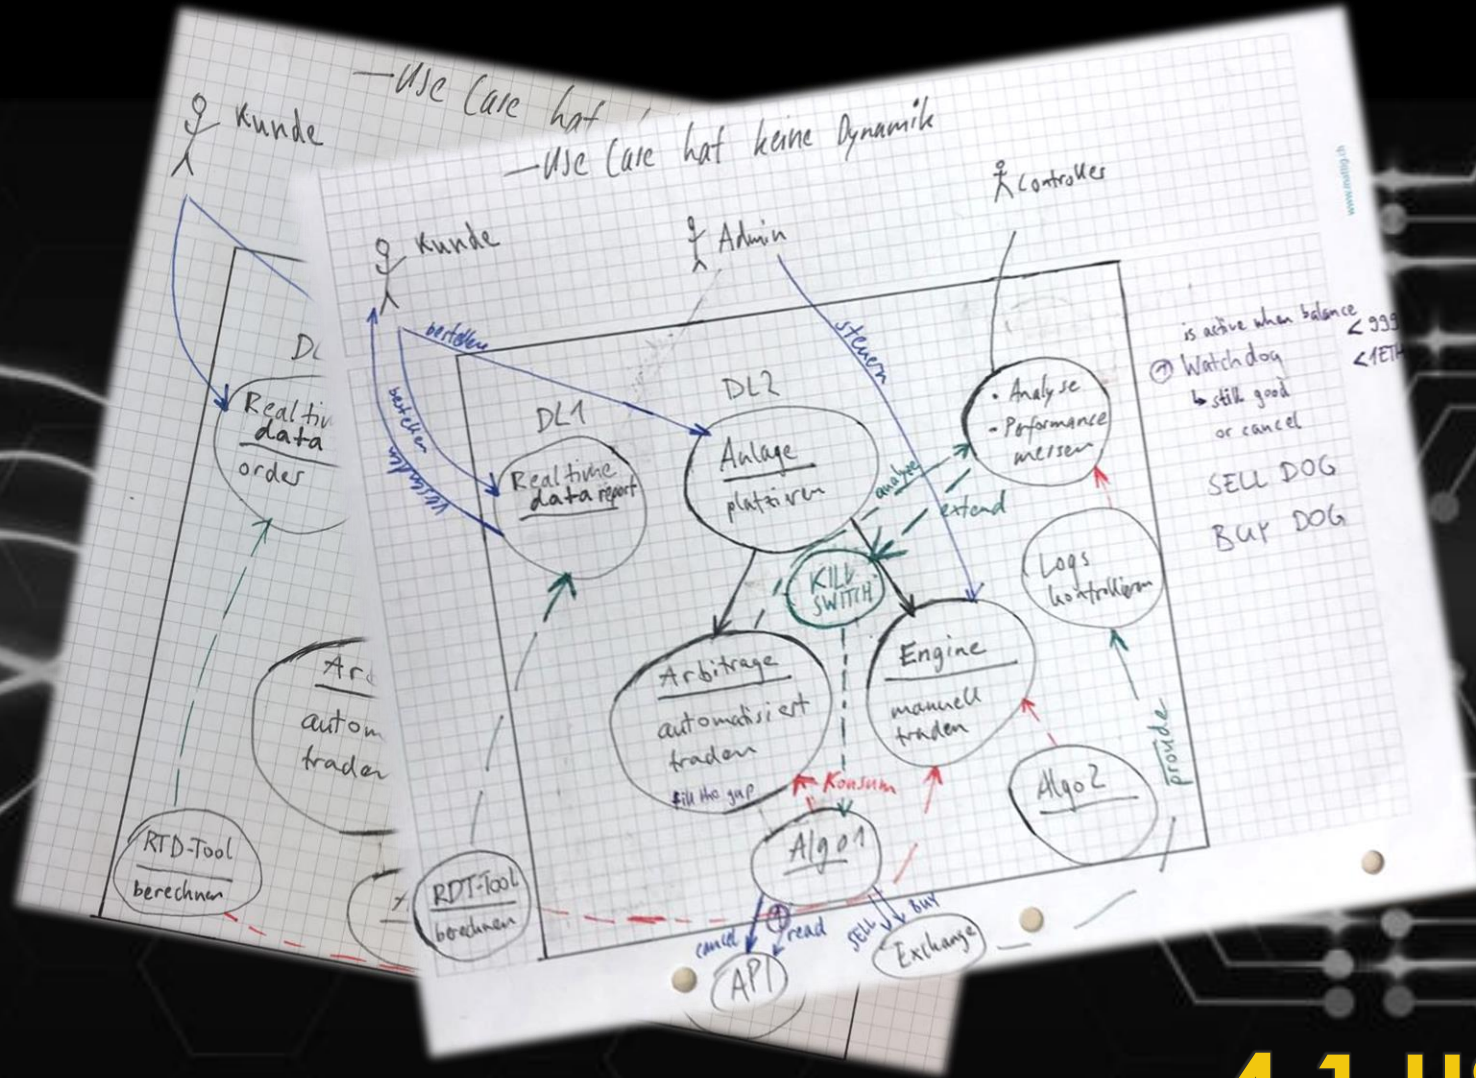 — Use Case hat
Kunde
Realtim
data
order
Ar
autom
traden
RTD-Tool
berechnen
— Use Case hat keine Dynamik
Kunde
Admin
Controller
bestellen
bestellen
versenden
steuern
DL1
DL2
Realtime
data report
Anlage
platzieren
• Analyse
- Performance
messen
analyze
extend
KILL
SWITCH
Logs
kontrollieren
Arbitrage
automatisiert
traden
fill the gap
Engine
manuell
traden
Konsum
Algo1
Algo2
provide
RDT-Tool
berechnen
cancel
1
read
SELL
BUY
API
Exchange
is active when balance < 999
1 Watchdog < 1ETH
↳ still good
or cancel
SELL DOG
BUY DOG